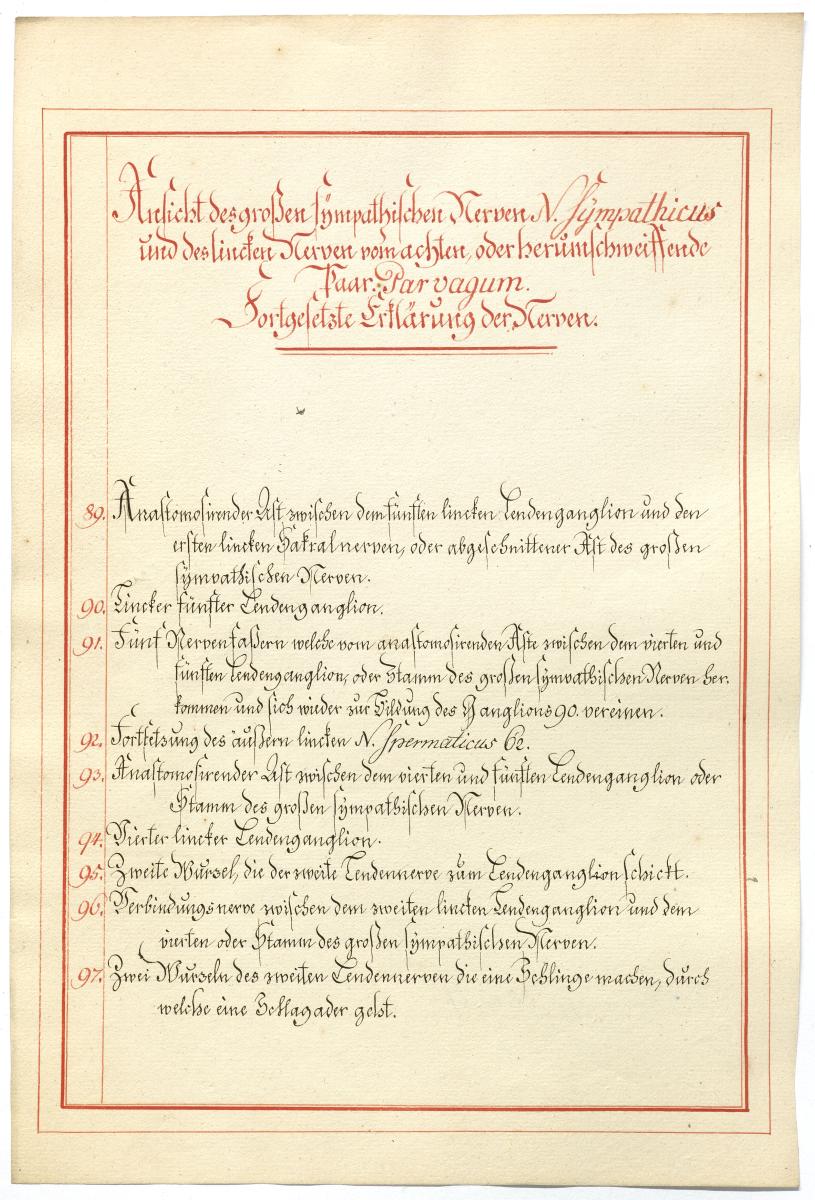 Ansicht des großen sympathischen Nerven N. Sympathicus
und des lincken Nerven vom achten, oder herumschweiffende
Paar. Par vagum.
Fortgesetzte Erklärung der Nerven.
89. Anastomosirender Ast zwischen dem fünften lincken Lendenganglion und den
ersten lincken Sakralnerven, oder abgeschnittener Ast des großen
sympathischen Nerven.
90. Lincker fünfter Lendenganglion.
91. Fünf Nervenfaßern welche vom anastomosirenden Aste zwischen dem vierten und
fünften Lendenganglion, oder Stamm des großen sympathischen Nerven her„
kommen und sich wieder zur Bildung des Ganglions 90. vereinen.
92. Fortsetzung des äußern lincken N. Spermaticus 62.
93. Anastomosirender Ast zwischen dem vierten und fünften Lendenganglion oder
Stamm des großen sympathischen Nerven.
94. Vierter lincker Lendenganglion.
95. Zweite Wurzel, die der zweite Lendennerve zum Lendenganglion schickt.
96. Verbindungsnerve zwischen dem zweiten lincken Lendenganglion und dem
vierten oder Stamm des großen sympathischen Nerven.
97. Zwei Wurzeln des zweiten Lendennerven die eine Schlinge machen, durch
welche eine Schlagader geht.